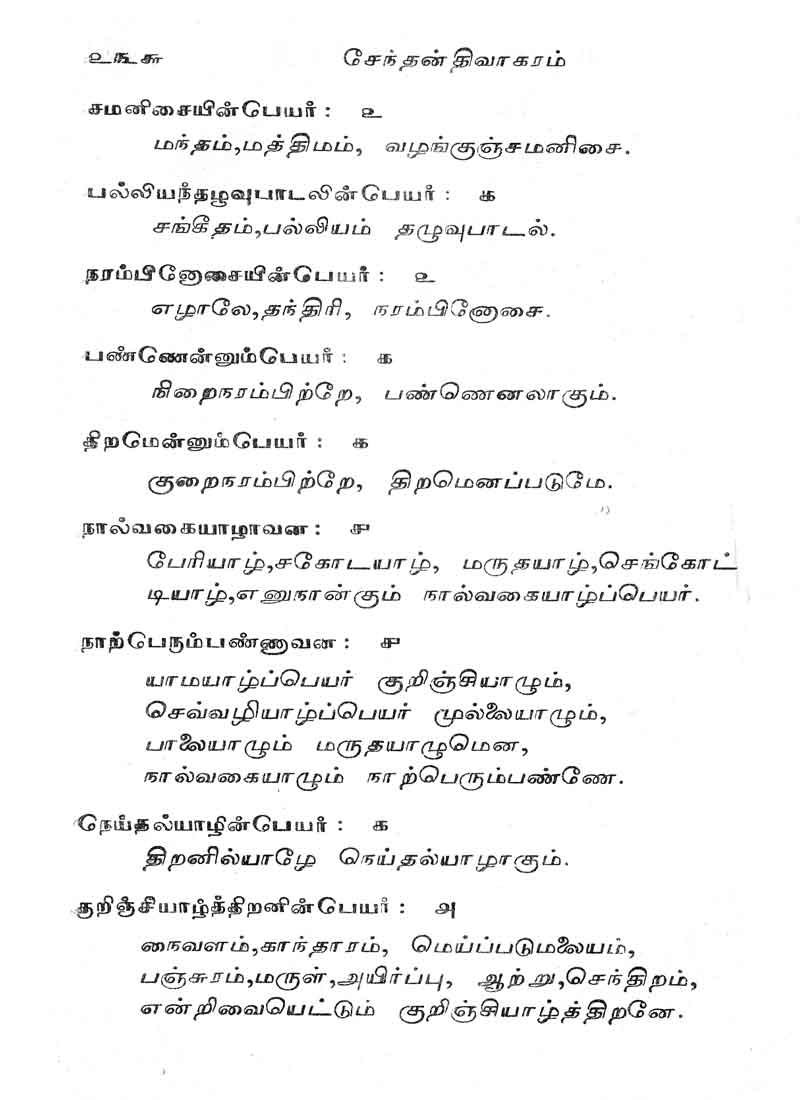 ௨௩௬ சேந்தன் திவாகரம்
சமனிசையின்பெயர் : ௨
மந்தம்,மத்திமம், வழங்குஞ்சமனிசை.
பல்லியந்தழுவுபாடலின்பெயர் : ௧
சங்கீதம்,பல்லியம் தழுவுபாடல்.
நரம்பினோசையின்பெயர் : ௨
எழாலே,தந்திரி, நரம்பினோசை.
பண்ணென்னும்பெயர் : ௧
நிறைநரம்பிற்றே, பண்ணெனலாகும்.
திறமென்னும்பெயர் : ௧
குறைநரம்பிற்றே, திறமெனப்படுமே.
நால்வகையாழாவன : ௪
பேரியாழ்,சகோடயாழ், மருதயாழ்,செங்கோட்
டியாழ்,எனுநான்கும் நால்வகையாழ்ப்பெயர்.
நாற்பேரும்பண்ணாவன : ௪
யாமயாழ்ப்பெயர் குறிஞ்சியாழும்,
செவ்வழியாழ்ப்பெயர் முல்லையாழும்,
பாலையாழும் மருதயாழுமென,
நால்வகையாழும் நாற்பெரும்பண்ணே.
நெய்தல்யாழின்பெயர் : ௧
திறனில்யாழே நெய்தல்யாழாகும்.
குறிஞ்சியாழ்த்திறனின்பெயர் : ௮
நைவளம்,காந்தாரம், மெய்ப்படுமலையம்,
பஞ்சுரம்,மருள்,அயிர்ப்பு, ஆற்று,செந்திறம்,
என்றிவையெட்டும் குறிஞ்சியாழ்த்திறனே.